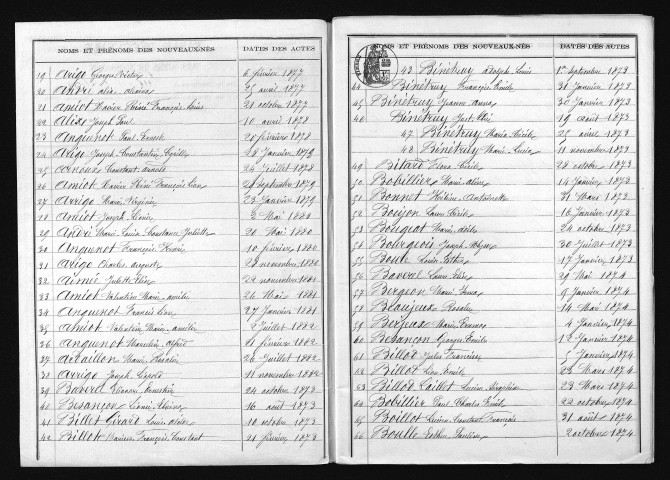 NOMS ET PRÉNOMS DES NOUVEAUX-NÉS DATES DES ACTES
19 Arigo Georges Victor 6 février 1877
20 André 25 avril 1877
21 Amiot Xavier Réné François Louis 21 octobre 1877
22 Alix Joseph Paul 10 avril 1878
23 Anguenot Paul Ernest 21 février 1878
24 Arigo Joseph Constantin Cyrille 28 Janvier 1879
25 Arnoux Constant 24 Juillet 1878
26 Amiot Xavier Réné François Léon 21 Septembre 1879
27 Arrigo Marie Virginie 23 Janvier 1879
28 Amiot Joseph 2 Mai 1880
29 André Marie Louise Constance Juliette 20 Mai 1880
30 Anguenot François Henri 10 février 1880
31 Arigo Charles Auguste 29 novembre 1880
32 Aimé Juliette 29 novembre 1881
33 Amiot Valentin Marie 26 Mai 1881
34 Anguenot Francis Léon 27 Janvier 1881
35 Amiot Valentin Marie 2 Juillet 1882
36 Anguenot Marcelin Alfred 21 février 1882
37 Marie 26 Juillet 1882
38 Arrigo Joseph Léopold 11 novembre 1882
39 Baverel 24 octobre 1873
40 Besançon 16 août 1873
41 Billet Girard Louis 10 octobre 1873
42 Billot François Constant 21 février 1873
NOMS ET PRÉNOMS DES NOUVEAUX-NÉS DATES DES ACTES
43 Bénétruy Adolphe Louis 1er Septembre 1873
44 Bénétruy François Emile 31 Janvier 1873
45 Bénétruy Jeanne Anna 30 Janvier 1873
46 Bénétruy Just Elie 19 août 1873
47 Bénétruy Marie Cécile 25 avril 1873
48 Bénétruy Marie Lucie 11 novembre 1873
49 Bitard 28 octobre 1873
50 Bobillier Marie 14 Janvier 1873
51 Bonnet Antoinette 31 Mars 1873
52 Boujon 16 Janvier 1873
53 Bougeot Marie 24 octobre 1873
54 Bourgeois Joseph 30 Juillet 1873
55 Boute Louise 17 Janvier 1873
56 Baverel 29 Mai 1874
57 Bergeon Marie 9 Janvier 1874
58 Beaujeux Rosalie 14 Mai 1874
59 Berjeux Marie 4 Janvier 1874
60 Besançon Georges Emile 12 Janvier 1874
61 Billot Jules Francisque 5 Janvier 1874
62 Billot Léon Emile 22 Mars 1874
63 Billot Laillet Lucien 23 Mars 1874
64 Bobillier Paul Charles Emile 22 octobre 1874
65 Boillot Constant François 31 août 1874
66 Boulle Esther Pauline 2 octobre 1874